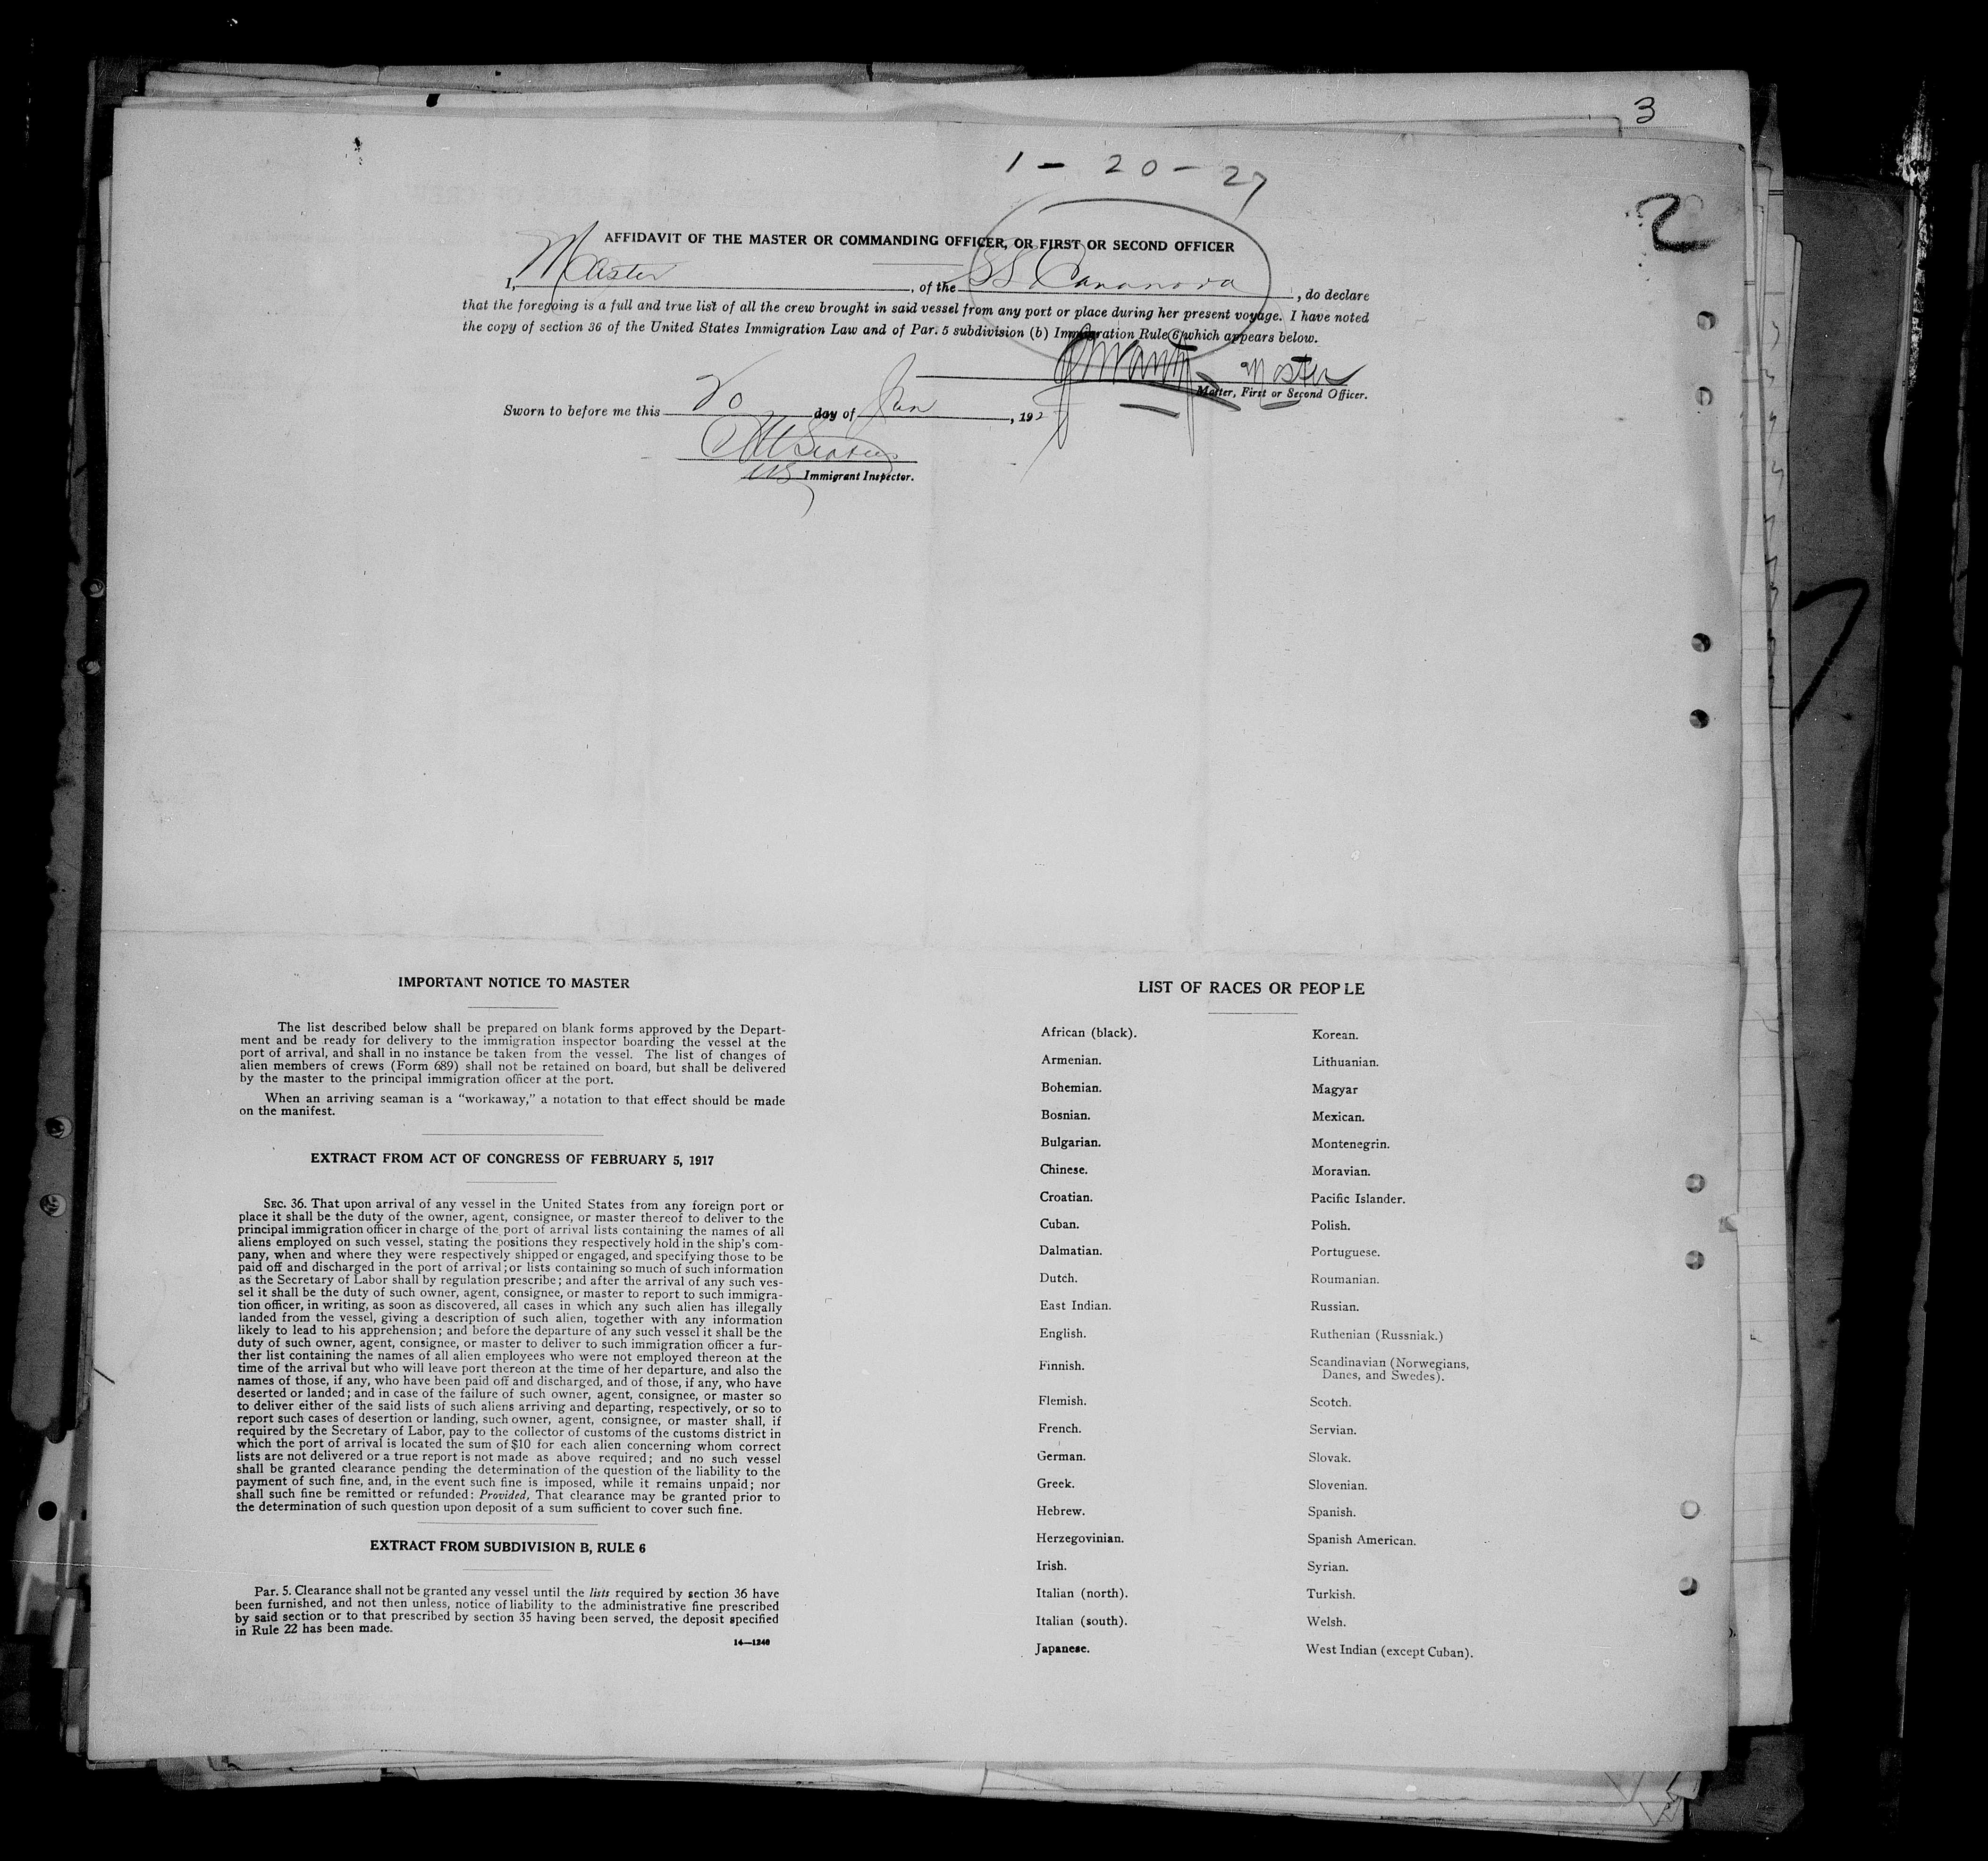 3
1 - 20 - 27
2
AFFIDAVIT OF THE MASTER OR COMMANDING OFFICER, OR FIRST OR SECOND OFFICER
I, Master, of the SS, do declare
that the foregoing is a full and true list of all the crew brought in said vessel from any port or place during her present voyage. I have noted
the copy of section 36 of the United States Immigration Law and of Par. 5 subdivision (b) Immigration Rule 6 which appears below.
Master
Master, First or Second Officer.
Sworn to before me this 20 day of Jan, 1927
Immigrant Inspector.
IMPORTANT NOTICE TO MASTER
The list described below shall be prepared on blank forms approved by the Depart-
ment and be ready for delivery to the immigration inspector boarding the vessel at the
port of arrival, and shall in no instance be taken from the vessel. The list of changes of
alien members of crews (Form 689) shall not be retained on board, but shall be delivered
by the master to the principal immigration officer at the port.
When an arriving seaman is a "workaway," a notation to that effect should be made
on the manifest.
EXTRACT FROM ACT OF CONGRESS OF FEBRUARY 5, 1917
SEC. 36. That upon arrival of any vessel in the United States from any foreign port or
place it shall be the duty of the owner, agent, consignee, or master thereof to deliver to the
principal immigration officer in charge of the port of arrival lists containing the names of all
aliens employed on such vessel, stating the positions they respectively hold in the ship's com-
pany, when and where they were respectively shipped or engaged, and specifying those to be
paid off and discharged in the port of arrival; or lists containing so much of such information
as the Secretary of Labor shall by regulation prescribe; and after the arrival of any such ves-
sel it shall be the duty of such owner, agent, consignee, or master to report to such immigra-
tion officer, in writing, as soon as discovered, all cases in which any such alien has illegally
landed from the vessel, giving a description of such alien, together with any information
likely to lead to his apprehension; and before the departure of any such vessel it shall be the
duty of such owner, agent, consignee, or master to deliver to such immigration officer a fur-
ther list containing the names of all alien employees who were not employed thereon at the
time of the arrival but who will leave port thereon at the time of her departure, and also the
names of those, if any, who have been paid off and discharged, and of those, if any, who have
deserted or landed; and in case of the failure of such owner, agent, consignee, or master so
to deliver either of the said lists of such aliens arriving and departing, respectively, or so to
report such cases of desertion or landing, such owner, agent, consignee, or master shall, if
required by the Secretary of Labor, pay to the collector of customs of the customs district in
which the port of arrival is located the sum of $10 for each alien concerning whom correct
lists are not delivered or a true report is not made as above required; and no such vessel
shall be granted clearance pending the determination of the question of the liability to the
payment of such fine, and, in the event such fine is imposed, while it remains unpaid; nor
shall such fine be remitted or refunded: Provided, That clearance may be granted prior to
the determination of such question upon deposit of a sum sufficient to cover such fine.
EXTRACT FROM SUBDIVISION B, RULE 6
Par. 5. Clearance shall not be granted any vessel until the lists required by section 36 have
been furnished, and not then unless, notice of liability to the administrative fine prescribed
by said section or to that prescribed by section 35 having been served, the deposit specified
in Rule 22 has been made.
14—1240
LIST OF RACES OR PEOPLE
African (black).
Armenian.
Bohemian.
Bosnian.
Bulgarian.
Chinese.
Croatian.
Cuban.
Dalmatian.
Dutch.
East Indian.
English.
Finnish.
Flemish.
French.
German.
Greek.
Hebrew.
Herzegovinian.
Irish.
Italian (north).
Italian (south).
Japanese.
Korean.
Lithuanian.
Magyar
Mexican.
Montenegrin.
Moravian.
Pacific Islander.
Polish.
Portuguese.
Roumanian.
Russian.
Ruthenian (Russniak.)
Scandinavian (Norwegians,
Danes, and Swedes).
Scotch.
Servian.
Slovak.
Slovenian.
Spanish.
Spanish American.
Syrian.
Turkish.
Welsh.
West Indian (except Cuban).